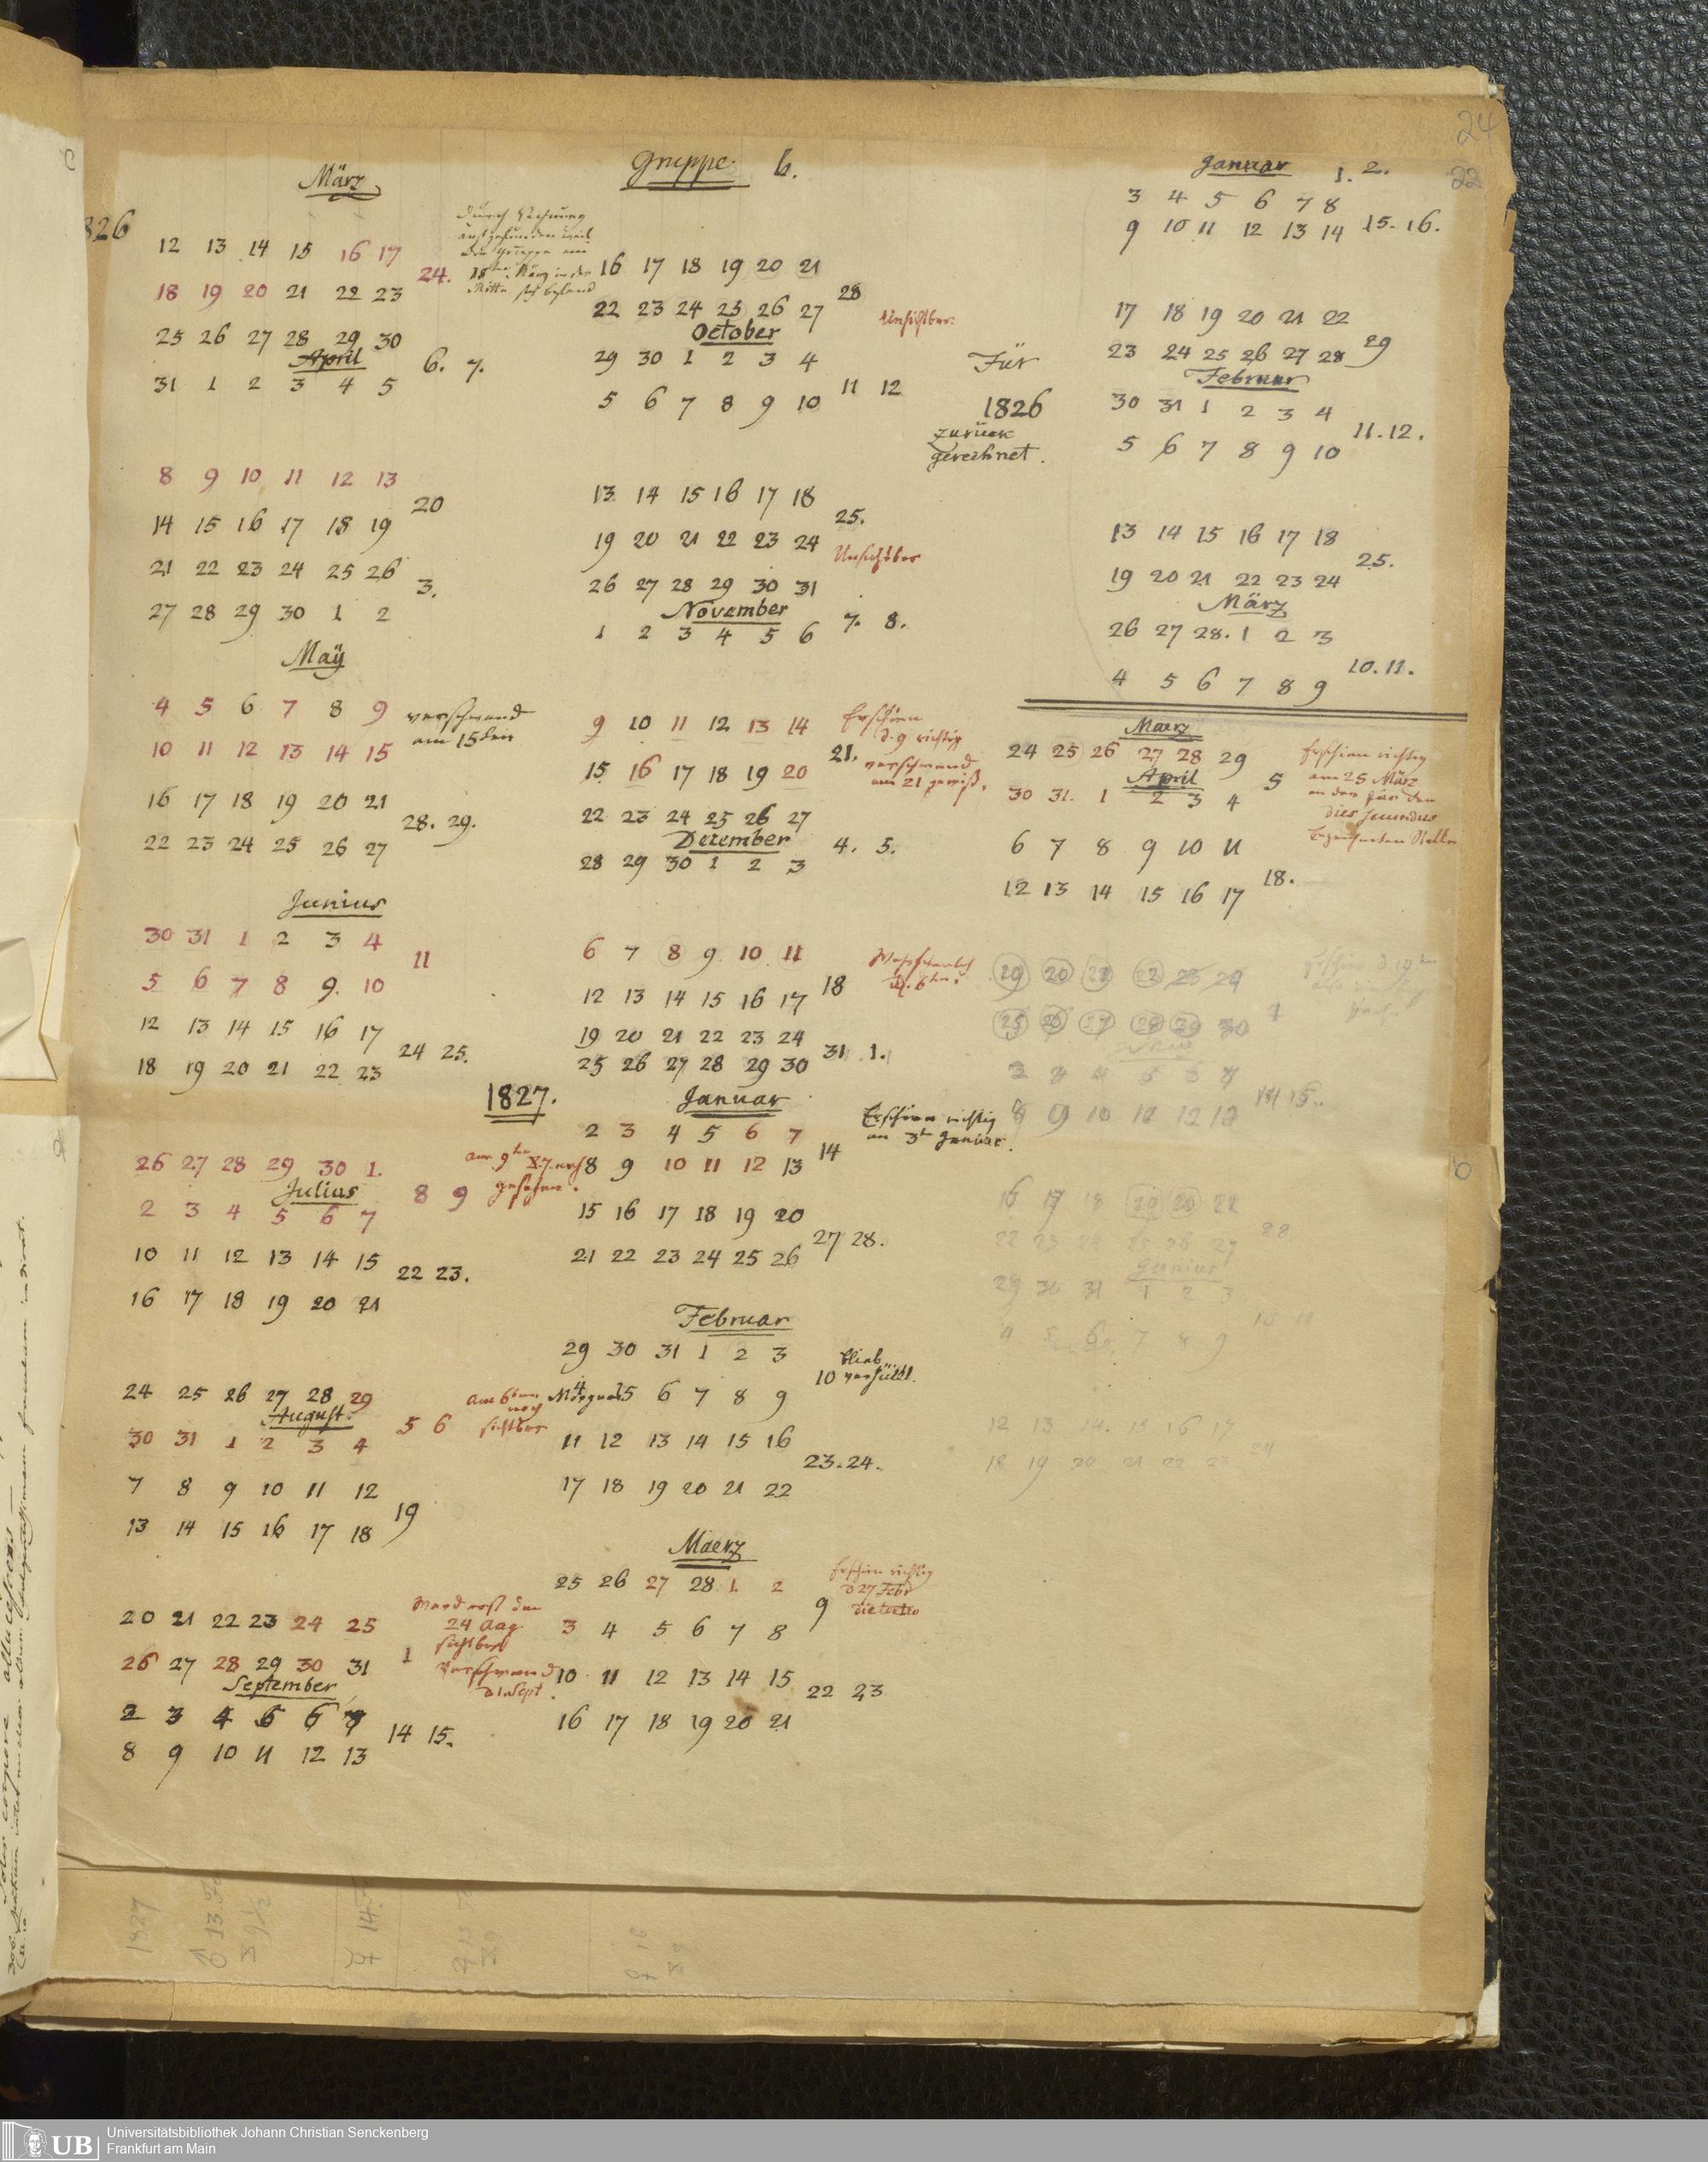 24
22
Gruppe. b.
März
1826
12 13 14 15 16 17
24.
18 19 20 21 22 23
25 26 27 28 29 30
April
6. 7.
31 1 2 3 4 5
8 9 10 11 12 13
20
14 15 16 17 18 19
21 22 23 24 25 26
3.
27 28 29 30 1 2
Maÿ
4 5 6 7 8 9
verschwand
am 15den
10 11 12 13 14 15
16 17 18 19 20 21
28. 29.
22 23 24 25 26 27
Junius
30 31 1 2 3 4
11
5 6 7 8 9. 10
12 13 14 15 16 17
24 25.
18 19 20 21 22 23
26 27 28 29 30 1.
Julius
8 9
2 3 4 5 6 7
10 11 12 13 14 15
22 23.
16 17 18 19 20 21
24 25 26 27 28 29
August.
5 6
30 31 1 2 3 4
7 8 9 10 11 12
19
13 14 15 16 17 18
20 21 22 23 24 25
1
26 27 28 29 30 31
September
2 3 4 5 6 7
14 15.
8 9 10 11 12 13
durch Rechnung
die Gruppe am
18ten März in der
Mitte sich befand
am 6ten
noch
sichtbar
24 Aug
sichtbar
verschwand
d 1. Sept.
16 17 18 19 20 21
28
22 23 24 25 26 27
Unsichtbar.
October
29 30 1 2 3 4
11 12
5 6 7 8 9 10
13 14 15 16 17 18
25.
19 20 21 22 23 24
Unsichtbar
26 27 28 29 30 31
November
7. 8.
1 2 3 4 5 6
9 10 11 12 13 14
Erschien
d. 9 richtig
21. verschwand
am 21 gewiß.
15 16 17 18 19 20
22 23 24 25 26 27
December
4. 5.
28 29 30 1 2 3
6 7 8 9 10 11
18
12 13 14 15 16 17
19 20 21 22 23 24
31 1.
25 26 27 28 29 30
1827.
Januar
2 3 4 5 6 7
14
Erschien richtig
am 3t Januar.
8 9 10 11 12 13
15 16 17 18 19 20
27 28.
21 22 23 24 25 26
Februar
29 30 31 1 2 3
blieb
10 verhüllt.
4 5 6 7 8 9
11 12 13 14 15 16
23. 24.
17 18 19 20 21 22
Maerz
25 26 27 28 1 2
Erschien richtig
d 27 Febr
9
3 4 5 6 7 8
10 11 12 13 14 15
22 23
16 17 18 19 20 21
Für
1826
zurück
gerechnet.
Januar 1. 2.
3 4 5 6 7 8
15. 16.
9 10 11 12 13 14
17 18 19 20 21 22
29
23 24 25 26 27 28
Februar
30 31 1 2 3 4
11. 12.
5 6 7 8 9 10
13 14 15 16 17 18
25.
19 20 21 22 23 24
März
26 27 28. 1 2 3
10. 11.
4 5 6 7 8 9
Maerz
24 25 26 27 28 29
April
5
30 31. 1 2 3 4
Erschien richtig
am 25 März
an der für den
dies secundus
bezeichneten Stelle
6 7 8 9 10 11
18.
12 13 14 15 16 17
16 17 18 19 20 21
28
22 23 24 25 26 27
Junius
29 30 31 1 2 3
10 11
4 5 6 7 8 9
12 13 14 15 16 17
24
18 19 20 21 22 23
1827
UB
Universitätsbibliothek Johann Christian Senckenberg
Frankfurt am Main